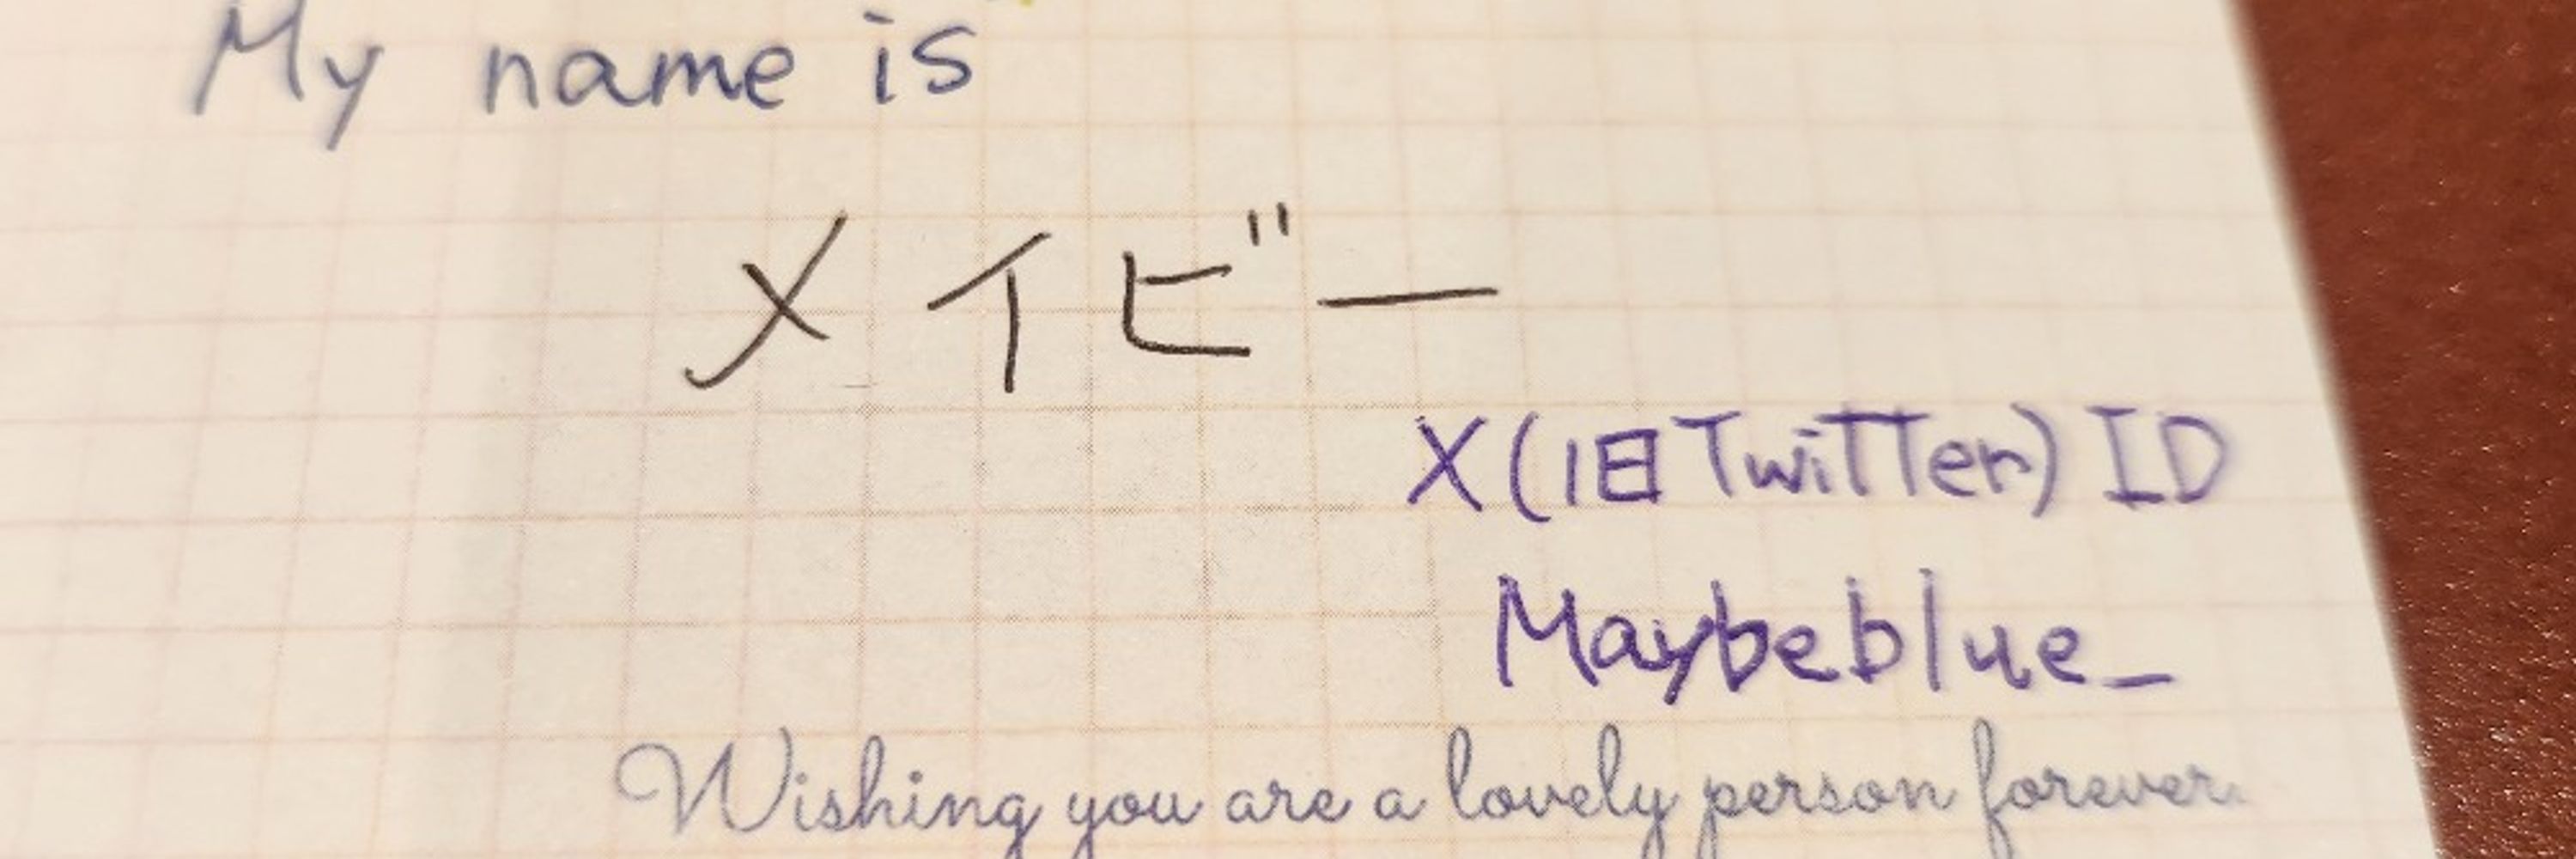 My name is
メイビー
X(旧Twitter) ID
Maybeblue_
Wishing you are a lovely person forever.